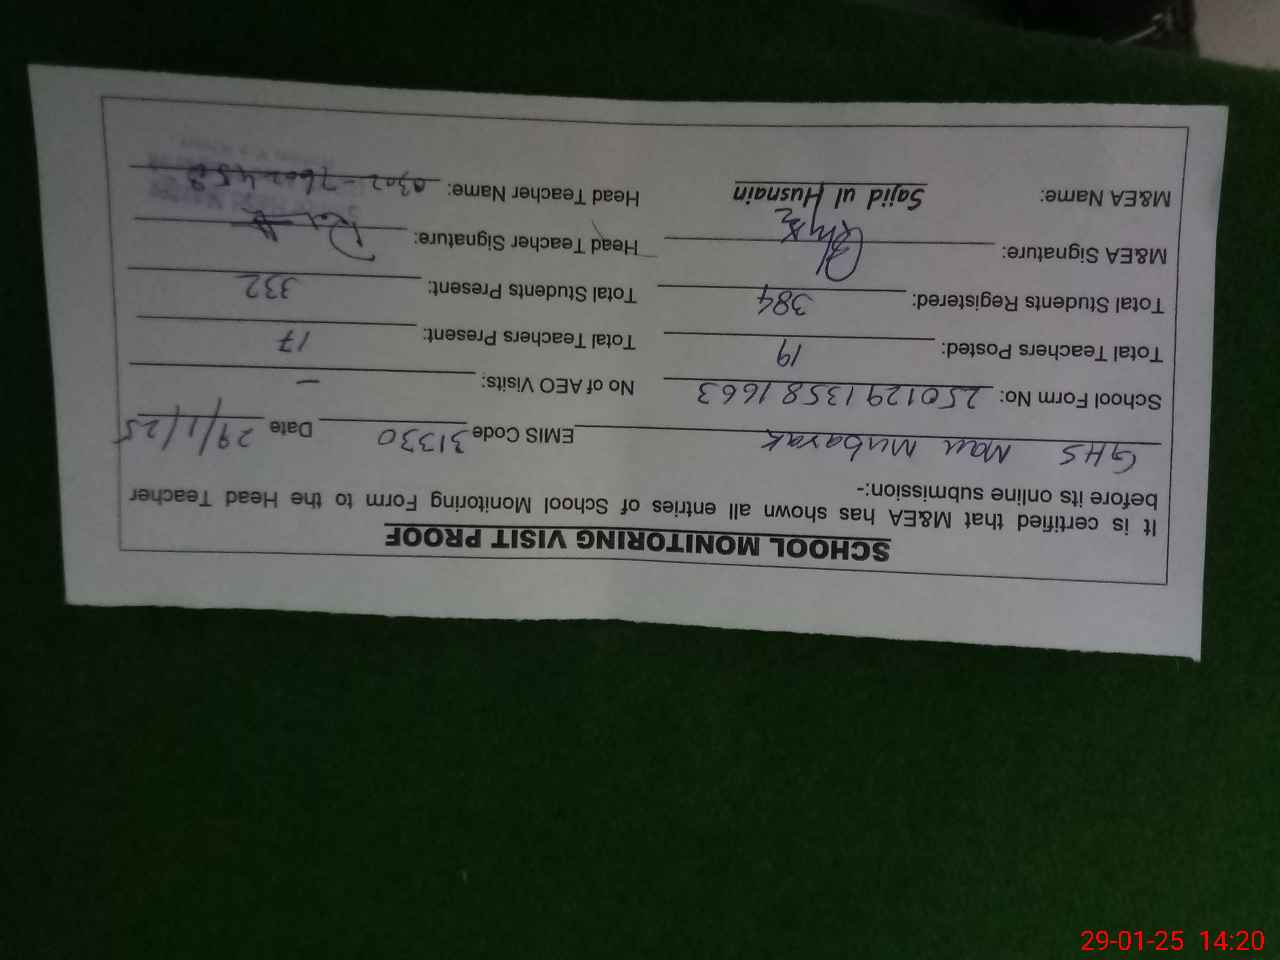 SCHOOL MONITORING VISIT PROOF
It is certified that M&EA has shown all entries of School Monitoring Form to the Head Teacher
before its online submission:-
GHS Mau Mubarak EMIS Code 31330 Date 29/1/25
School Form No: 2501291358 1663 No of AEO Visits: –
Total Teachers Posted: 19 Total Teachers Present: 17
Total Students Registered: 384 Total Students Present: 332
M&EA Signature: Head Teacher Signature:
M&EA Name: Sajid ul Husnain Head Teacher Name: 0302-7602458
29-01-25 14:20